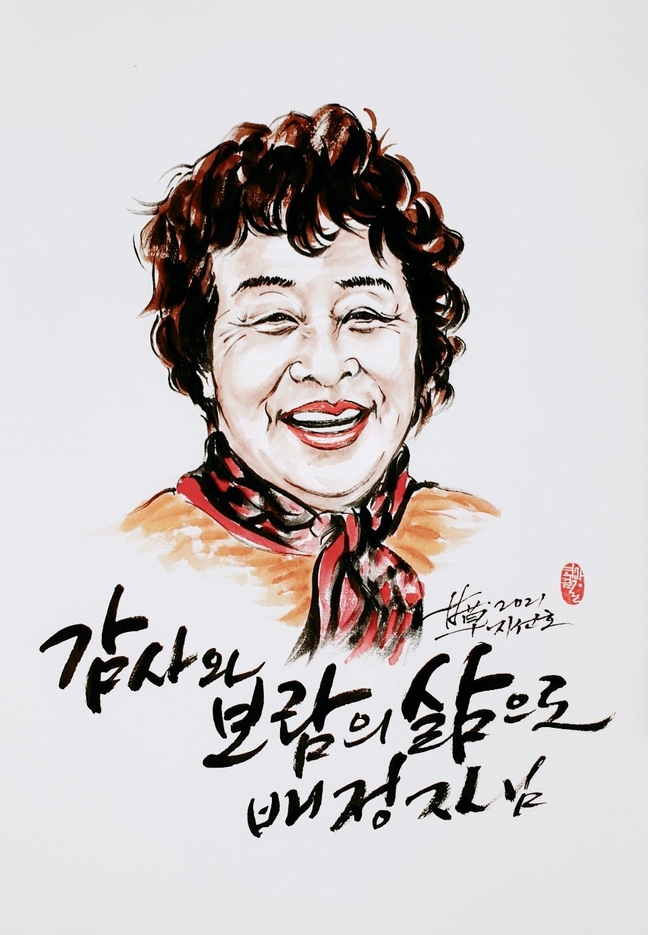 甘草·2021
지선호
감사와
보람의 삶으로
배정자님